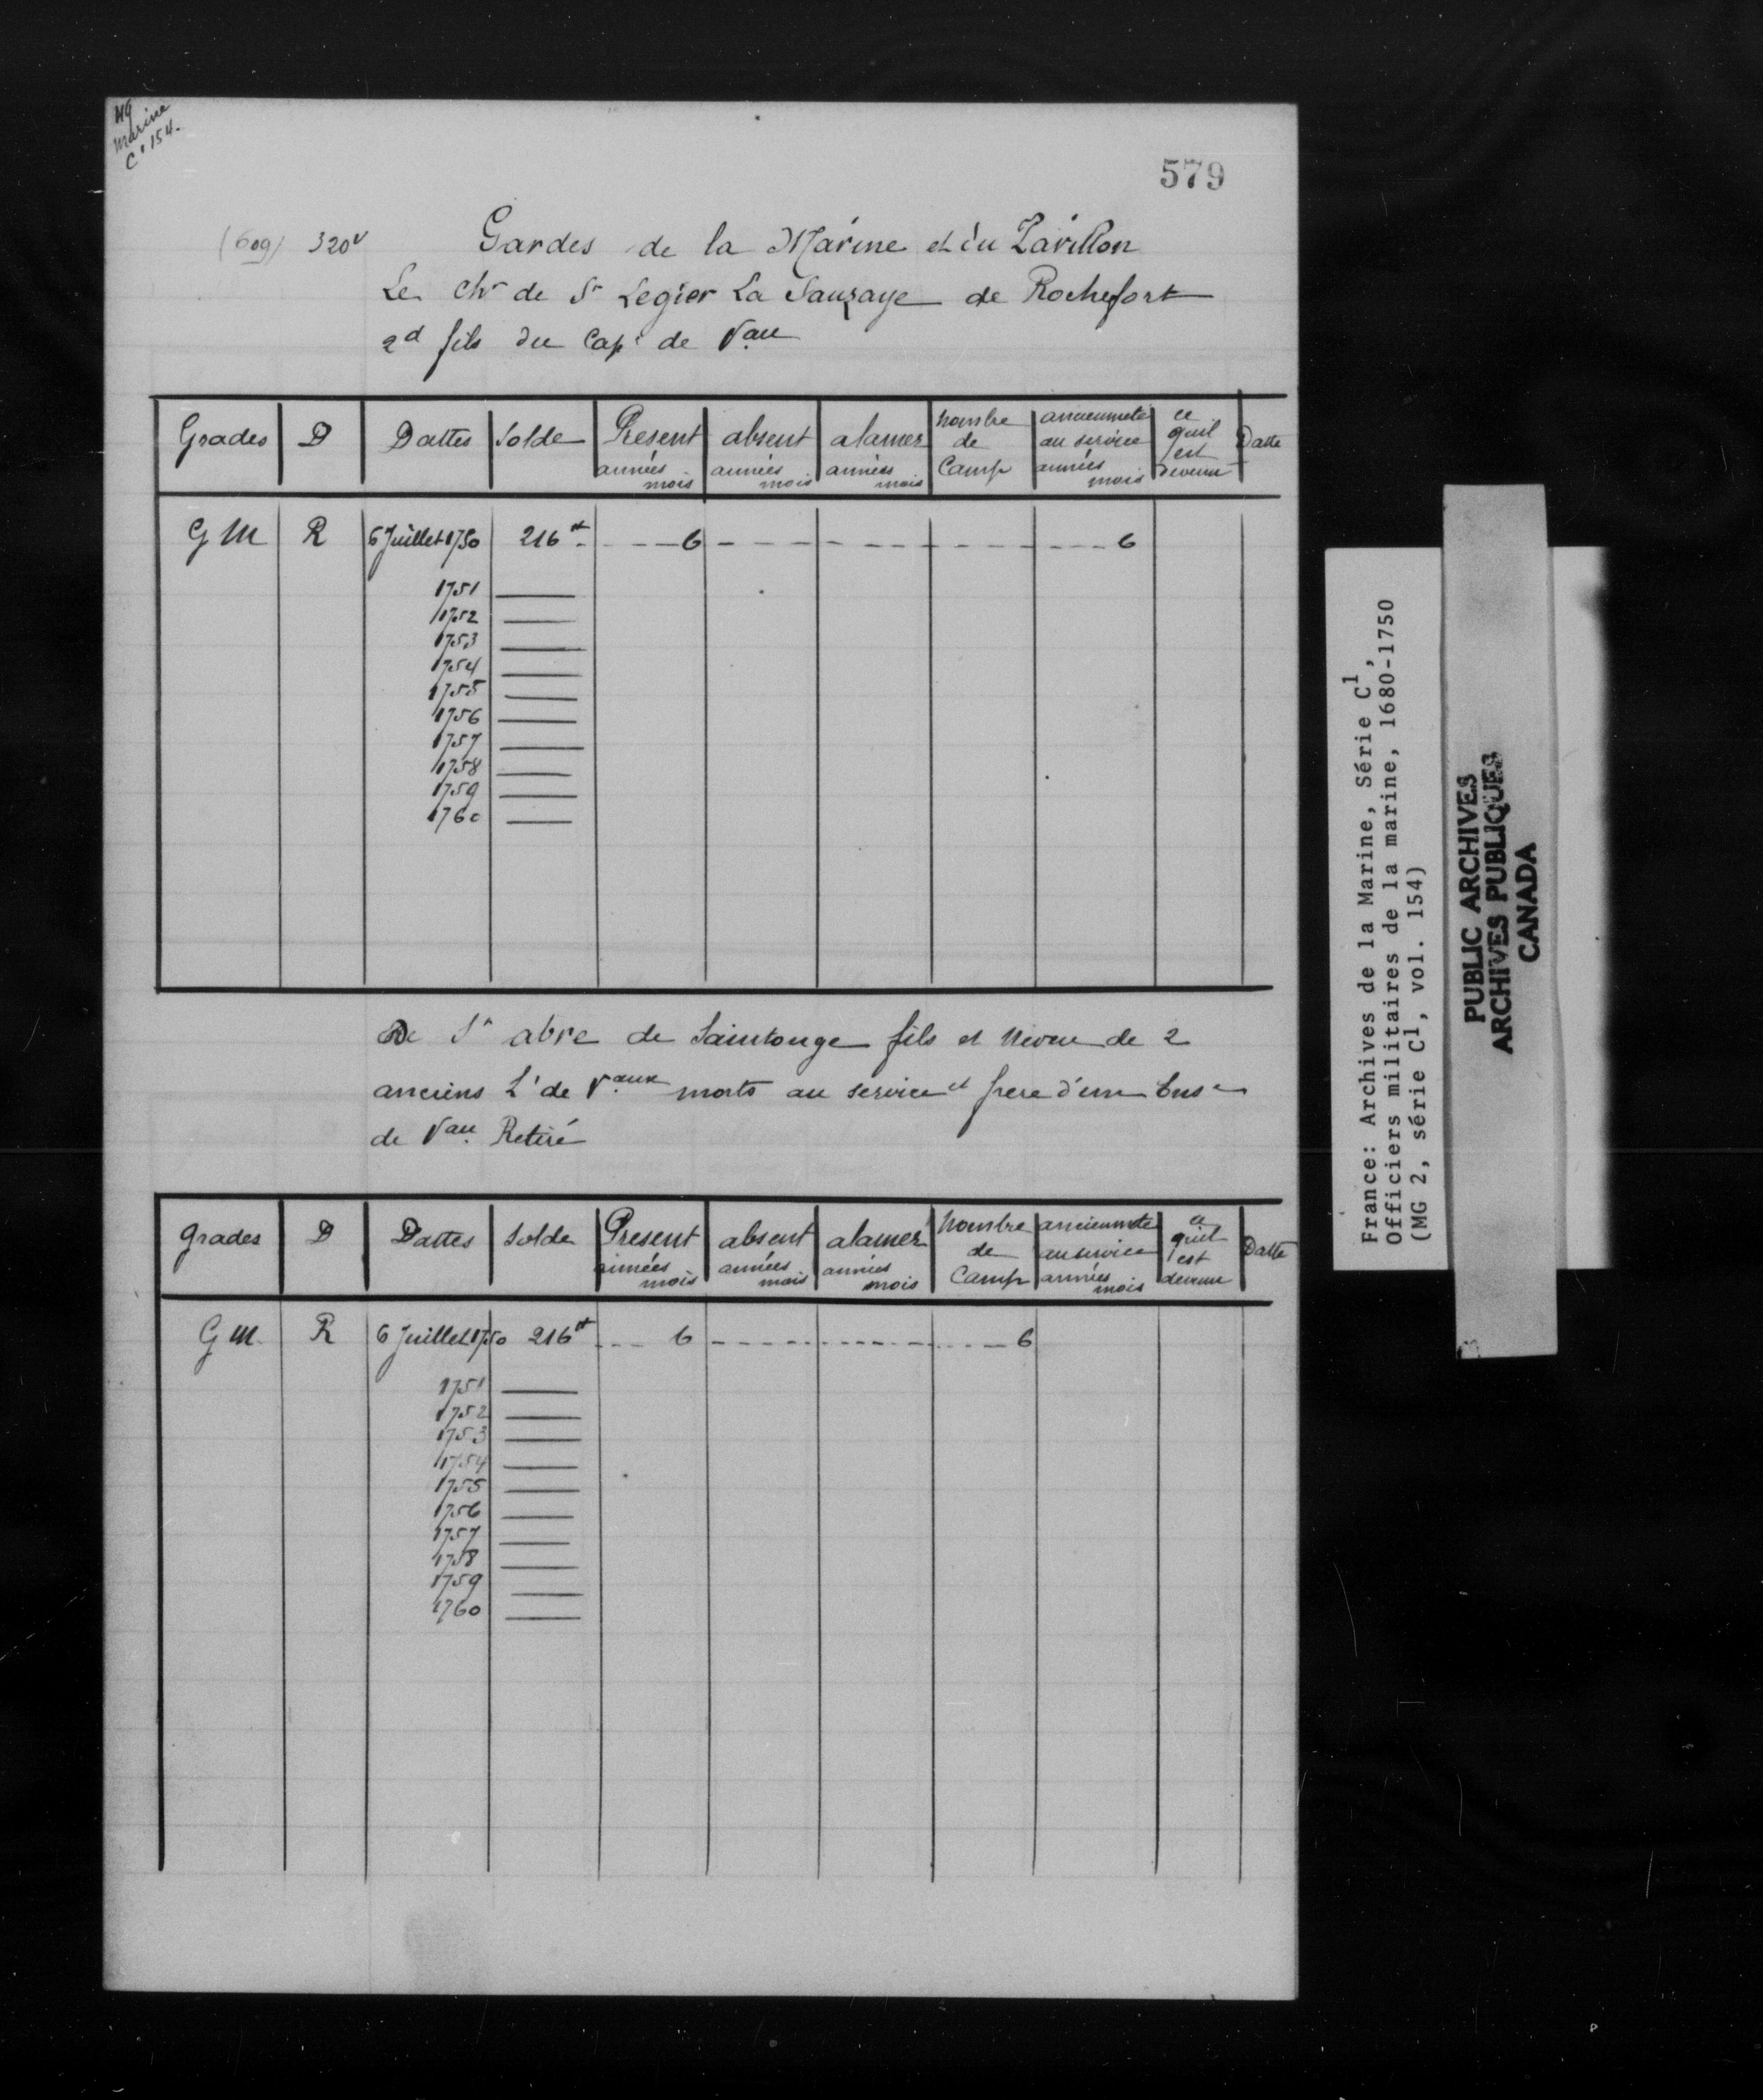 Marine
C¹ 154.
579
(609) 320v
Gardes de la Marine et du Pavillon
Le Chr de St Legier La Sauzaye de Rochefort
2d fils du Cape de Vau
Grades D Dattes Solde Present années mois absent années mois alamer années mois Nombre de Camp ancienneté au service années mois ce quil est devenu Datte
GM R 6 Juillet 1750 216# 6 6
1751
1752
1753
1754
1755
1756
1757
1758
1759
1760
De St abre de Saintonge fils et Neveu de 2
anciens Lt de Vaux morts au service et frere d'un Ense
de Vau Retiré
grades D Dattes Solde Present années mois absent années mois alamer années mois Nombre de Camp ancienneté au service années mois ce quil est devenu Datte
GM R 6 Juillet 1750 216# 6 6
1751
1752
1753
1754
1755
1756
1757
1758
1759
1760
France: Archives de la Marine, Série C1,
Officiers militaires de la marine, 1680-1750
(MG 2, série C1, vol. 154)
PUBLIC ARCHIVES
ARCHIVES PUBLIQUES
CANADA